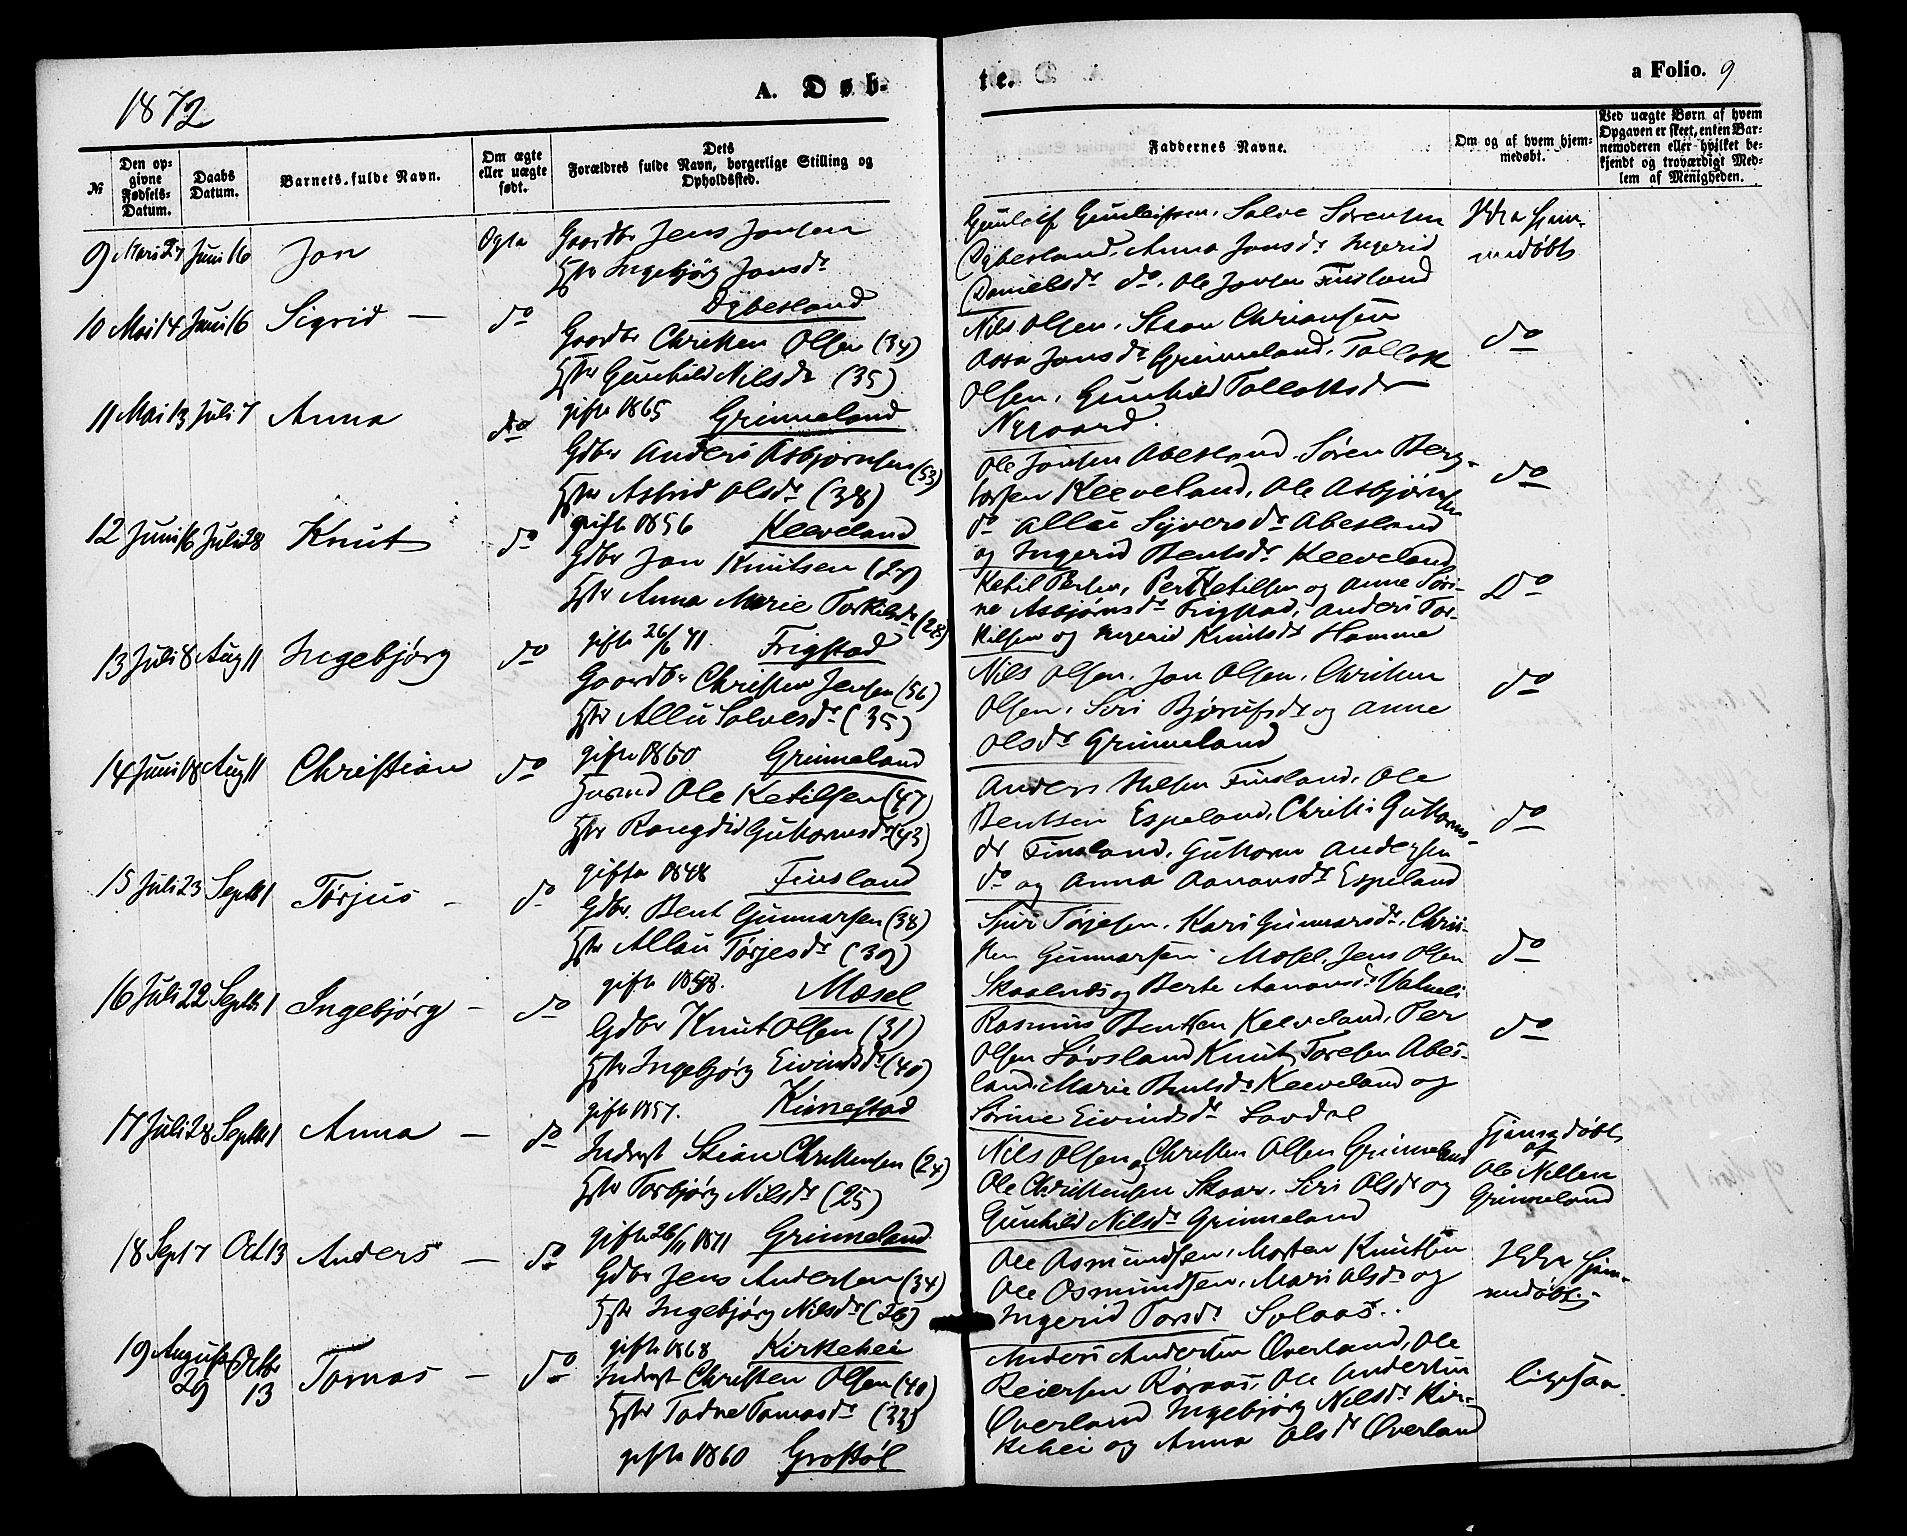 1872
A. Døb-
te.
a Folio. 9
№
Den opgivne Fødsels-Datum.
Daabs Datum.
Barnets fulde Navn.
Om ægte eller uægte født.
Dets Forældres fulde Navn, borgerlige Stilling og Opholdssted.
Faddernes Navne.
Om og af hvem hjemmedøbt.
Ved uægte Børn af hvem Opgaven er skeet, enten Barnemoderen eller hvilket bekjendt og troværdigt Medlem af Menigheden.
9 Mai 27 Juni 16 Jon Ægte Gaardbr Jens Jonsen
Hstr Ingebjørg Jonsdr
Dybesland
Gunleif Gunleifsen, Salve Sørensen
Dybesland, Anna Jonsdr Ingerid
Danielsdr do. Ole Jonsen Finsland
Ikke hjem-
medøbt
10 Mai 14 Juni 16 Sigrid — do
Gaardbr Christen Olsen (34)
Hstr Gunhild Nilsdr (35)
gifte 1865 Grimeland
Nils Olsen, Staan Christensen
Aasa Jonsdr Grimeland, Tallak
Olsen, Gunhild Tallaksdr
Nygaard.
do
11 Mai 13 Juli 7 Anna do
Gdbr Anders Asbjørnsen (53)
Hstr Astrid Olsdr (38)
gifte 1856 Kleeveland
Ole Jonsen Abesland, Søren Berg-
torsen Kleeveland, Ole Asbjørnsen
do Allu Syversdr Abesland
og Ingerid Bentsdr Kleeveland
do
12 Juni 16 Juli 28 Knut do
Gdbr Jon Knutsen (27)
Hstr Anna Marie Torkilsdr (28)
gifte 26/6 71 Frigstad
Ketil Persen, Per Ketilsen og Anne Søri-
ne Asbjørnsdr Frigstad, Anders Tor-
kilsen og Ingerid Knutsdr Homme
Do
13 Juli 8 Aug 11 Ingebjørg do
Gaardbr Christen Jensen (56)
Hstr Allu Salvesdr (35)
gifte 1860 Grimeland
Nils Olsen, Jon Olsen, Christen
Olsen, Siri Bjørufsdr og Anne
Olsdr Grimeland
do
14 Juni 18 Aug 11 Christian do
Husmd Ole Ketilsen (47)
Hstr Rangdid Guttormsdr (43)
gifte 1848 Finsland
Anders Nilsen Finsland, Ole
Bentsen Espeland, Christi Guttorms-
dr Finsland, Guttorm Andersen
do og Anna Aanonsdr Espeland
do
15 Juli 23 Septb 1 Tørjus — do
Gdbr. Bent Gunnarsen (38)
Hstr Allau Tørjesdr (39)
gifte 1858. Mosel
Siur Tørjesen, Kari Gunnarsdr, Chris-
ten Gunnarsen Mosel, Jens Olsen
Skaalnes og Berte Aanonsdr Vatneli
do
16 Juli 22 Septb 1 Ingebjørg — do
Gdbr Knut Olsen (31)
Hstr Ingebjørg Eivindsdr (40)
gifte 1857. Kimestad
Rasmus Bentsen Keeveland, Per
Olsen Løvsland Knut Toresen Abes-
land, Marie Bentsdr Kleeveland og
Sørine Eivindsdr Lavdal
do
17 Juli 28 Septb 1 Anna — do
Indrgst Stian Christensen (24)
Hstr Torbjørg Nilsdr (25)
gifte 26/11 1871 Grimeland
Nils Olsen og Christen Olsen Grimeland
Ole Christensen Skaar, Siri Olsdr og
Gunhild Nilsdr Grimeland
Hjemmedøbt
af
Ole Nilsen
Grimeland
18 Sept 7 Oct 13 Anders — do
Gdbr Jens Andersen (34)
Hstr Ingebjørg Nilsdr (26)
gifte 1868 Kirkehei
Ole Osmundsen, Morten Knutsen
Ole Osmundsen, Mari Olsdr og
Ingerid Torsdr Solaas.
Ikke hjem-
medøbt.
19 August 29 Octbr 13 Tomas — do
Indrgst Christen Olsen (40)
Hstr Tadne Tomasdr (33)
gifte 1860 Grostøl
Anders Andersen Øverland, Ole
Reiersen Røraas, Ole Andersen
Øverland Ingebjørg Nilsdr Kir-
kehei og Anna Olsdr Øverland
ligesaa.